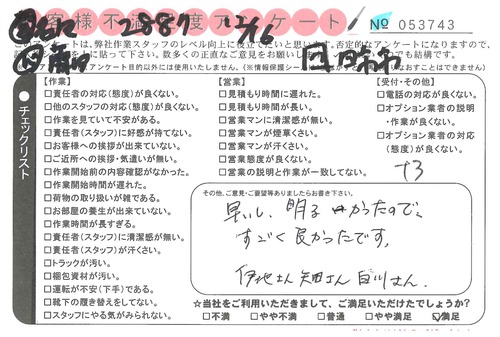 お客様不満足度アンケート
2887 12/16
№ 053743
このアンケートは、弊社作業スタッフのレベル向上に役立てたいと思います。否定的なアンケートになりますので、
【作業】
□責任者の対応(態度)が良くない。
□他のスタッフの対応(態度)が良くない。
□作業を見ていて不安がある。
□責任者(スタッフ)に好感が持てない。
□お客様への挨拶が出来ていない。
□ご近所への挨拶・気遣いが無い。
□作業開始前の内容確認がなかった。
□作業開始時間が遅れた。
□荷物の取り扱いが雑である。
□お部屋の養生が出来ていない。
□作業時間が長すぎる。
□責任者(スタッフ)に清潔感が無い。
□責任者(スタッフ)が汗くさい。
□トラックが汚い。
□梱包資材が汚い。
□運転が不安(下手)である。
□靴下の履き替えをしてない。
□スタッフにやる気がみられない。
【営業】
□見積時間に遅れた。
□見積もり時間が長い。
□営業マンに清潔感が無い。
□営業マンが煙草くさい。
□営業マンが汗くさい。
□営業態度が良くない。
□営業の説明と作業が一致してない。
【受付・その他】
□電話の対応が良くない。
□オプション業者の説明
・作業が良くない。
□オプション業者の対応
(態度)が良くない。
+3
チェックリスト
その他、ご意見・ご要望等ありましたらお書き下さい。
早いし、明るかったので、
すごく良かったです。
伊地さん 矢田さん 白川さん。
☆当社をご利用いただきまして、ご満足いただけたでしょうか?
□不満 □やや不満 □普通 □やや満足 ☑満足